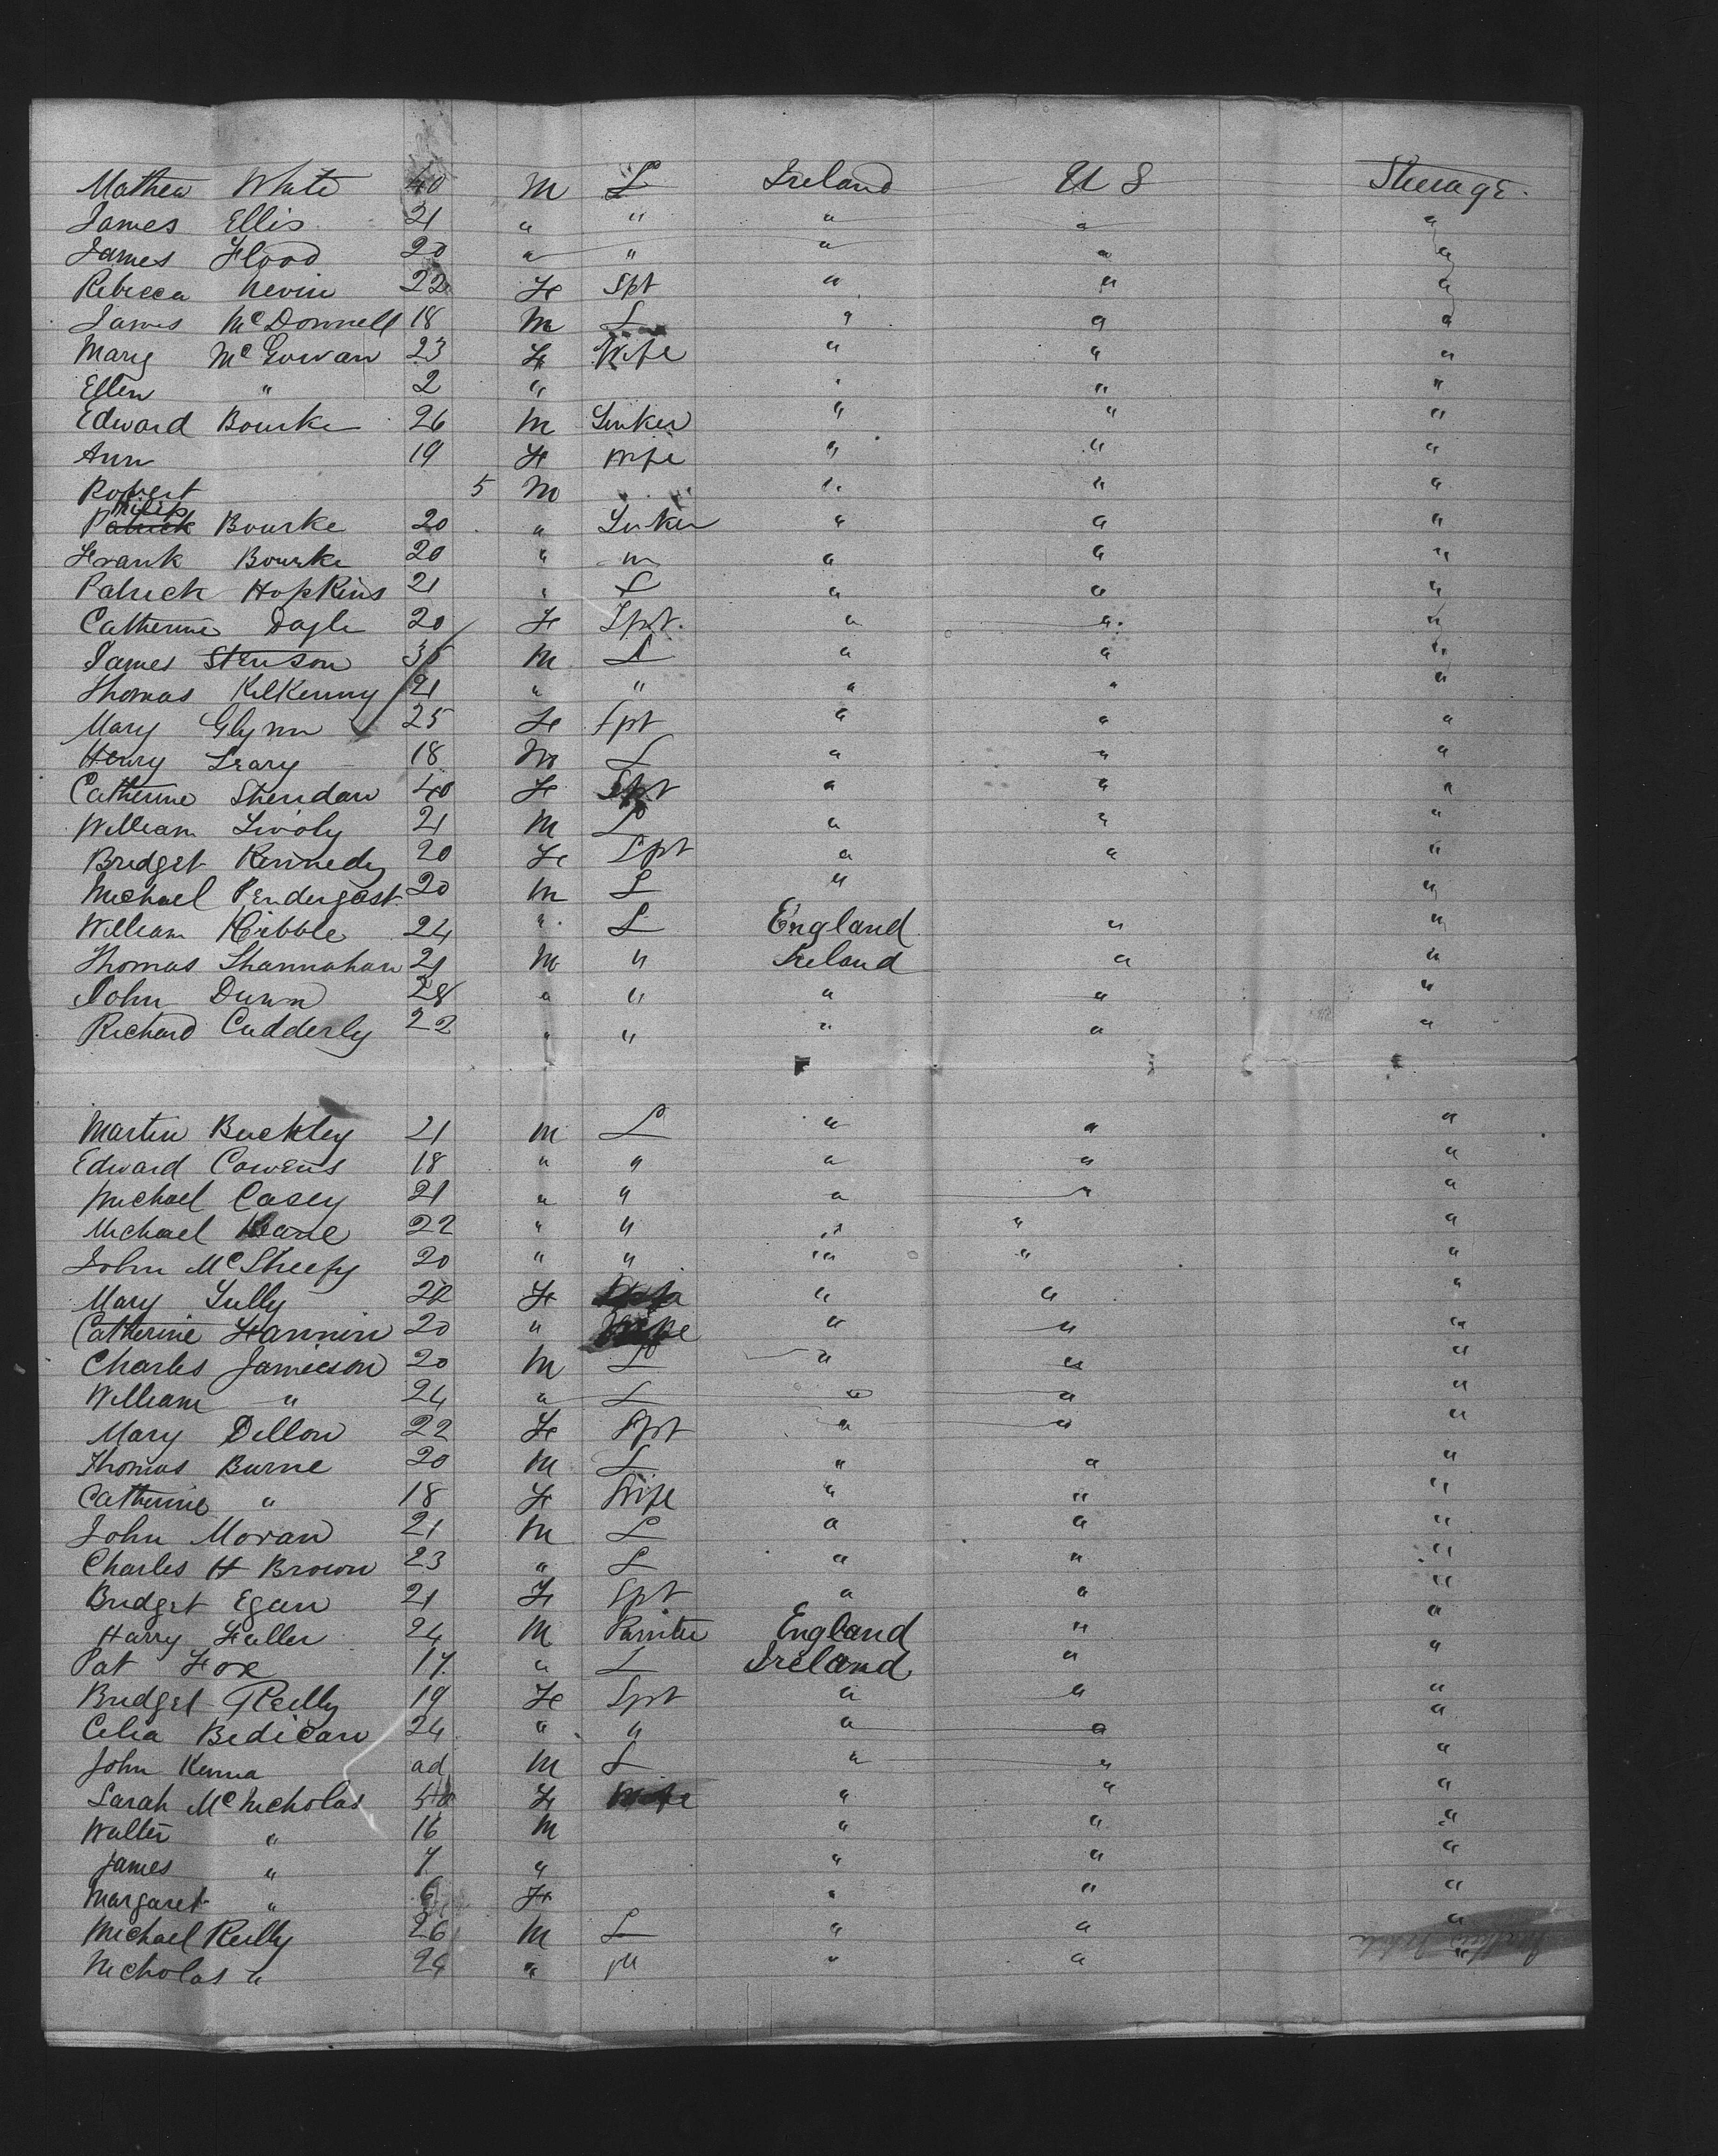 Mathew White 40 M L Ireland U S Steerage
James Ellis 21 " " " " "
James Flood 20 " " " " "
Rebecca Nevin 22 Fe Spt " " "
James McDonnell 18 M L " " "
Mary McGowan 23 Fe Wife " " "
Ellen " 2 " " " "
Edward Bourke 26 M " " "
Ann 19 Fe Wife " " "
Robert 5 M " " "
Philip Bourke 20 " " " "
Frank Bourke 20 " " " " "
Patrick Hopkins 21 " L " " "
Catherine Dogle 20 Fe Spt " " "
James Stenson 35 M L " " "
Thomas Kilkenny 21 " " " " "
Mary Glynn 25 Fe Spt " " "
Henry Leary 18 M L " " "
Catherine Sheridan 40 Fe Spt " " "
William 21 M L " " "
Bridget Kennedy 20 Fe Spt " " "
Michael Pendergast 20 M L " "
William Kibble 24 " L England " "
Thomas Shannahan 21 M " Ireland " "
John Dunn 28 " " " " "
Richard Cudderly 22 " " " " "
Martin Buckley 21 M L " " "
Edward Cowens 18 " " " " "
Michael Casey 21 " " " " "
Michael Keane 22 " " " " "
John McSheefy 20 " " " " "
Mary Lully 22 Fe " " "
Catherine Fannin 20 " " " "
Charles Jamieson 20 M L " " "
William " 24 " L " " "
Mary Dillon 22 Fe Spt " " "
Thomas Burne 20 M L " " "
Catherine " 18 Fe Wife " " "
John Moran 21 M L " " "
Charles H Brown 23 " L " " "
Bridget Egan 21 Fe Spt " " "
Harry Fuller 24 M Painter England " "
Pat Fox 17 " L Ireland " "
Bridget Reilly 19 Fe Spt " " "
Celia Bedican 24 " " " " "
John Kenna ad M L " " "
Sarah McNicholas Fe Wife " " "
Walter " 16 M " " "
James " 7 " " " "
Margaret " 6 Fe " " "
Michael Reilly 26 M L " " "
Nicholas " 24 " " " "